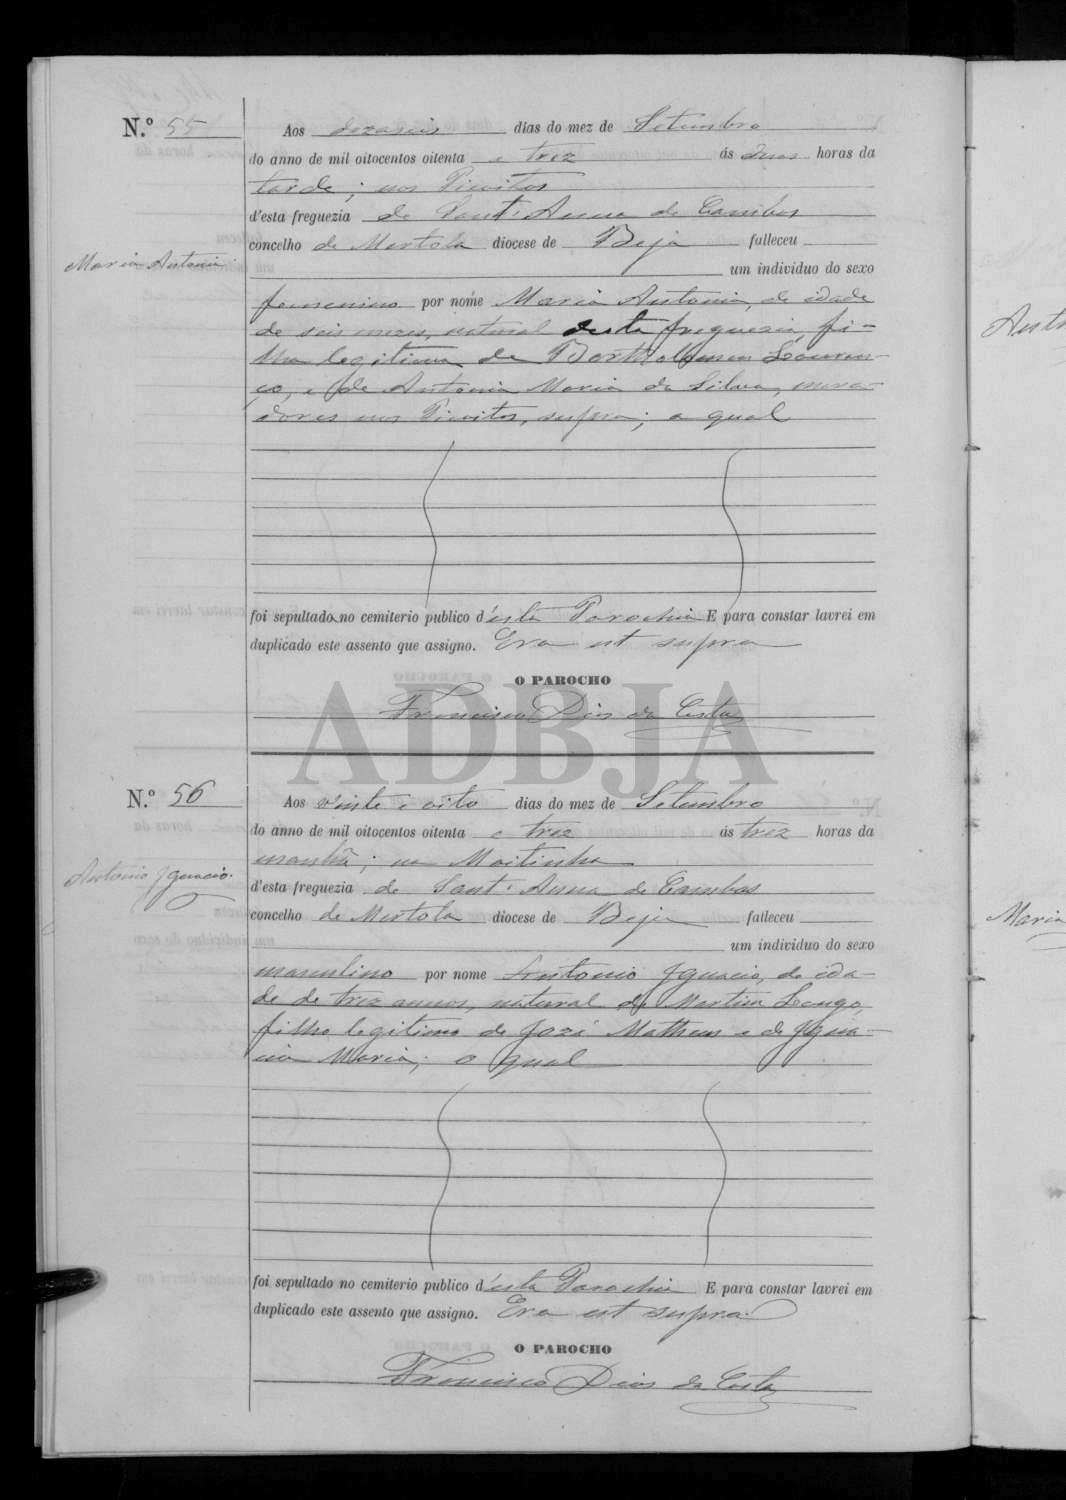 N.º 55
Aos dezaseis dias do mez de Setembro
do anno de mil oitocentos oitenta e trez ás duas horas da
tarde; nos
d'esta freguezia de Sant'Anna de Cambas
concelho de Mertola diocese de Beja falleceu
Maria Antonia
um individuo do sexo
femenino por nome Maria Antonia, de idade
de seis mezes, natural desta freguezia, fi-
lha legitima de Bartholomeu Louren-
ço, e de Antonia Maria da Silva, mora-
dores nos supra; a qual
foi sepultada no cemiterio publico d'esta Parochia E para constar lavrei em
duplicado este assento que assigno. Era ut supra
O PAROCHO
Francisco Dias da Costa
ADBJA
N.º 56
Aos vinte e oito dias do mez de Setembro
do anno de mil oitocentos oitenta e trez ás trez horas da
manhã; na Moitinha
Antonio Ignacio.
d'esta freguezia de Sant'Anna de Cambas
concelho de Mertola diocese de Beja falleceu
um individuo do sexo
masculino por nome Antonio Ignacio, de ida-
de de trez annos, natural de Martim Longo,
filho legitimo de José Matheus e de Igna-
cia Maria; o qual
foi sepultado no cemiterio publico d'esta Parochia E para constar lavrei em
duplicado este assento que assigno. Era ut supra
O PAROCHO
Francisco Dias da Costa
Maria